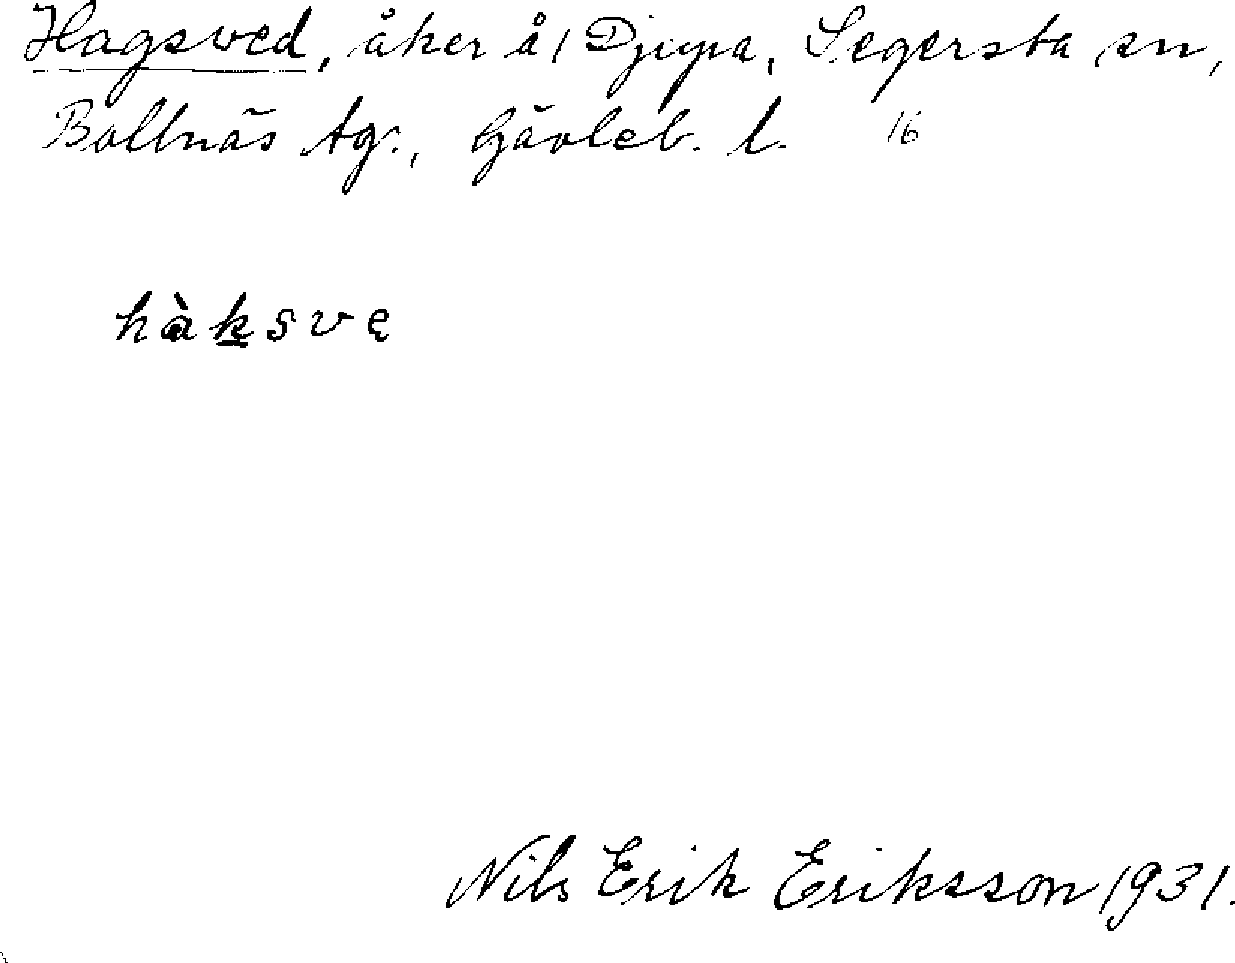 Hagsved, åker å 1 Djupa, Segersta sn,
Bollnäs tg., Gävleb. l. 16
hàk̲svę
Nils Erik Eriksson 1931.